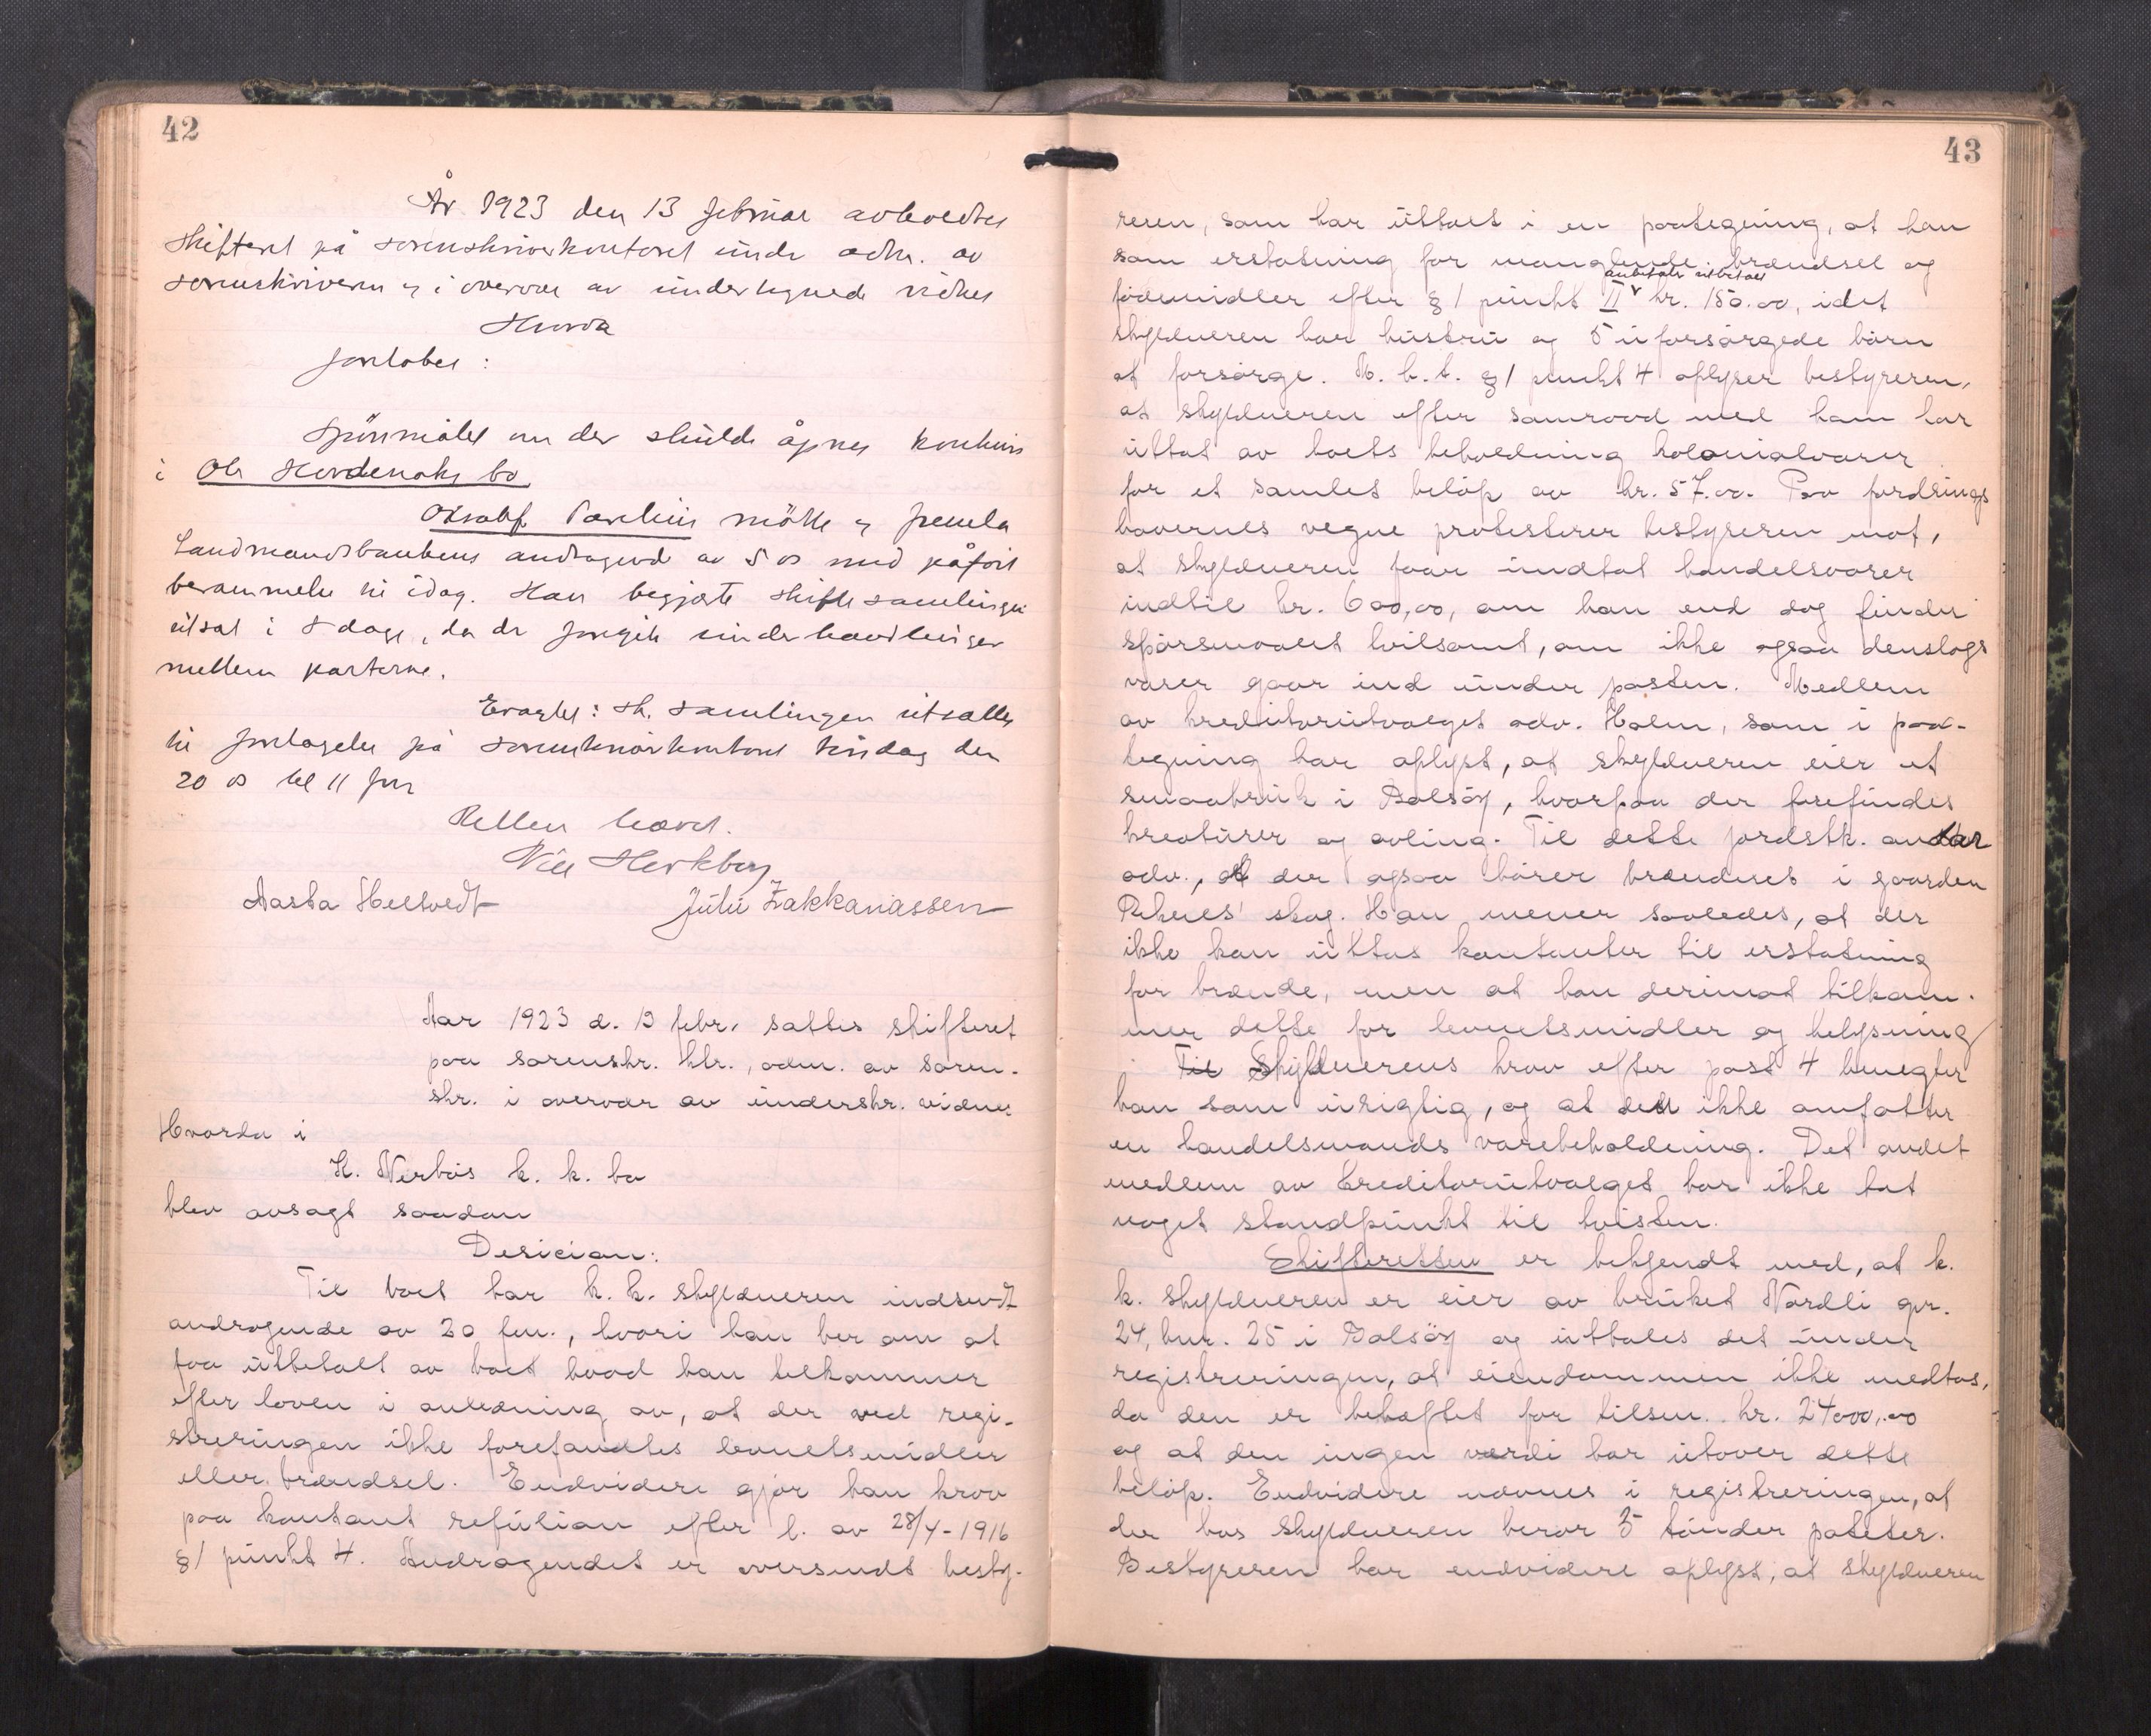 42
År 1923 den 13 februar avholdtes
skifteret på sorenskriverkontoret under adm. av
sorenskriveren og i overvær av undertegnede vidner
Hvorda
foretokes:
Spörsmålet om der skulde åpnes konkurs
i Ole Hordenaks bo
Oksakf. Parelius mötte og fremla
Landmandsbankens andragende av 5 ds med påfört
berammelse til idag. Han begjærte skiftesamlingen
utsat i 8 dage, da der foregik underhandlinger
mellem parterne.
Eragtet: Sk. samlingen utsattes
til foretagelse på sorenskriverkontoret tirsdag den
20 ds kl 11 fm
Retten hævet.
Aasta Heltvedt Julie Zakkariassen
Aar 1923 d. 13 febr. sattes skifteret
paa sorenskr. ktr., adm. av soren-
skr. i overvær av underskr. vidner
Hvorda i
K. Nerbös k. k. bo
blev avsagt saadan
Desicion:
Til boet har k. k. skyldneren indsendt
andragende av 20 jan., hvori han ber om at
faa utbetalt av boet hvad han tilkommer
efter loven i anledning av, at der ved regi-
streringen ikke forefandtes levnetsmidler
eller brændsel. Endvidere gjör han krav
paa kontant refusion efter l. av 28/4-1916
§1 punkt 4. Andragendet er oversendt besty-
43
reren, som har uttalt i en paategning, at han
som erstatning for manglende brændsel og
anbefaler utbetalt
fødemidler efter §1 punkt II v kr. 150.00, idet
skyldneren har hustru og 5 uforsörgede börn
at forsörge. M. h. t. §1 punkt 4 oplyser bestyreren,
at skyldneren efter samraad med ham har
uttat av boets beholdning kolonialvarer
for et samlet belöp av kr. 57.00. Paa fordrings
havernes vegne protesterer bestyreren mot,
at skyldneren faar undtat handelsvarer
indtil kr. 600,00, om han end dog finder
spörsmaalet tvilsomt, om ikke ogsaa denslags
varer gaar ind under posten. Medlem
av kreditorutvalget adv. Holm, som i paa-
tegning har oplyst, at skyldneren eier et
smaabruk i Bolsöy, hvorpaa der forefindes
kreaturer og avling. Til dette jordstk. antar
adv., at der ogsaa hörer brændsel i gaarden
Reknes' skog. Han mener saaledes, at der
ikke kan uttas kontanter til erstatning
for brænde, men at han derimot tilkom-
mer dette for levnetsmidler og belysning
Til Skyldnerens krav efter post 4 benegter
han som urigtig, og at den ikke omfatter
en handelsmands varebeholdning. Det andet
medlem av kreditorutvalget har ikke tat
noget standpunkt til tvisten.
Skifteretten er bekjendt med, at k.
k. skyldneren er eier av bruket Nordli gnr.
24, bnr. 25 i Bolsöy og uttales det under
registreringen, at eiendommen ikke medtas,
da den er beheftet for tilsm. kr. 24000,00
og at den ingen værdi har utover dette
belöp. Endvidere nævnes i registreringen, at
der hos skyldneren beror 3 tönder poteter.
Bestyreren har endvidere oplyst, at skyldneren